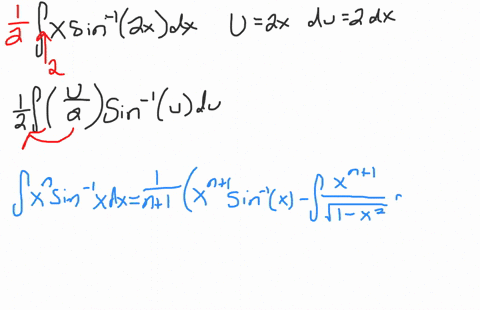 1/2 ∫ x sin⁻¹(2x) dx U = 2x du = 2 dx
2
1/2 ∫ (U/2) Sin⁻¹(u) du
∫ xⁿ Sin⁻¹ x dx = 1/(n+1) (xⁿ⁺¹ Sin⁻¹(x) − ∫ xⁿ⁺¹/√(1−x²)